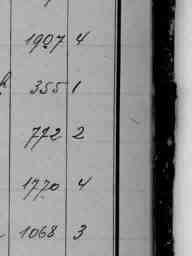 1907 4
355 1
772 2
1770 4
1068 3